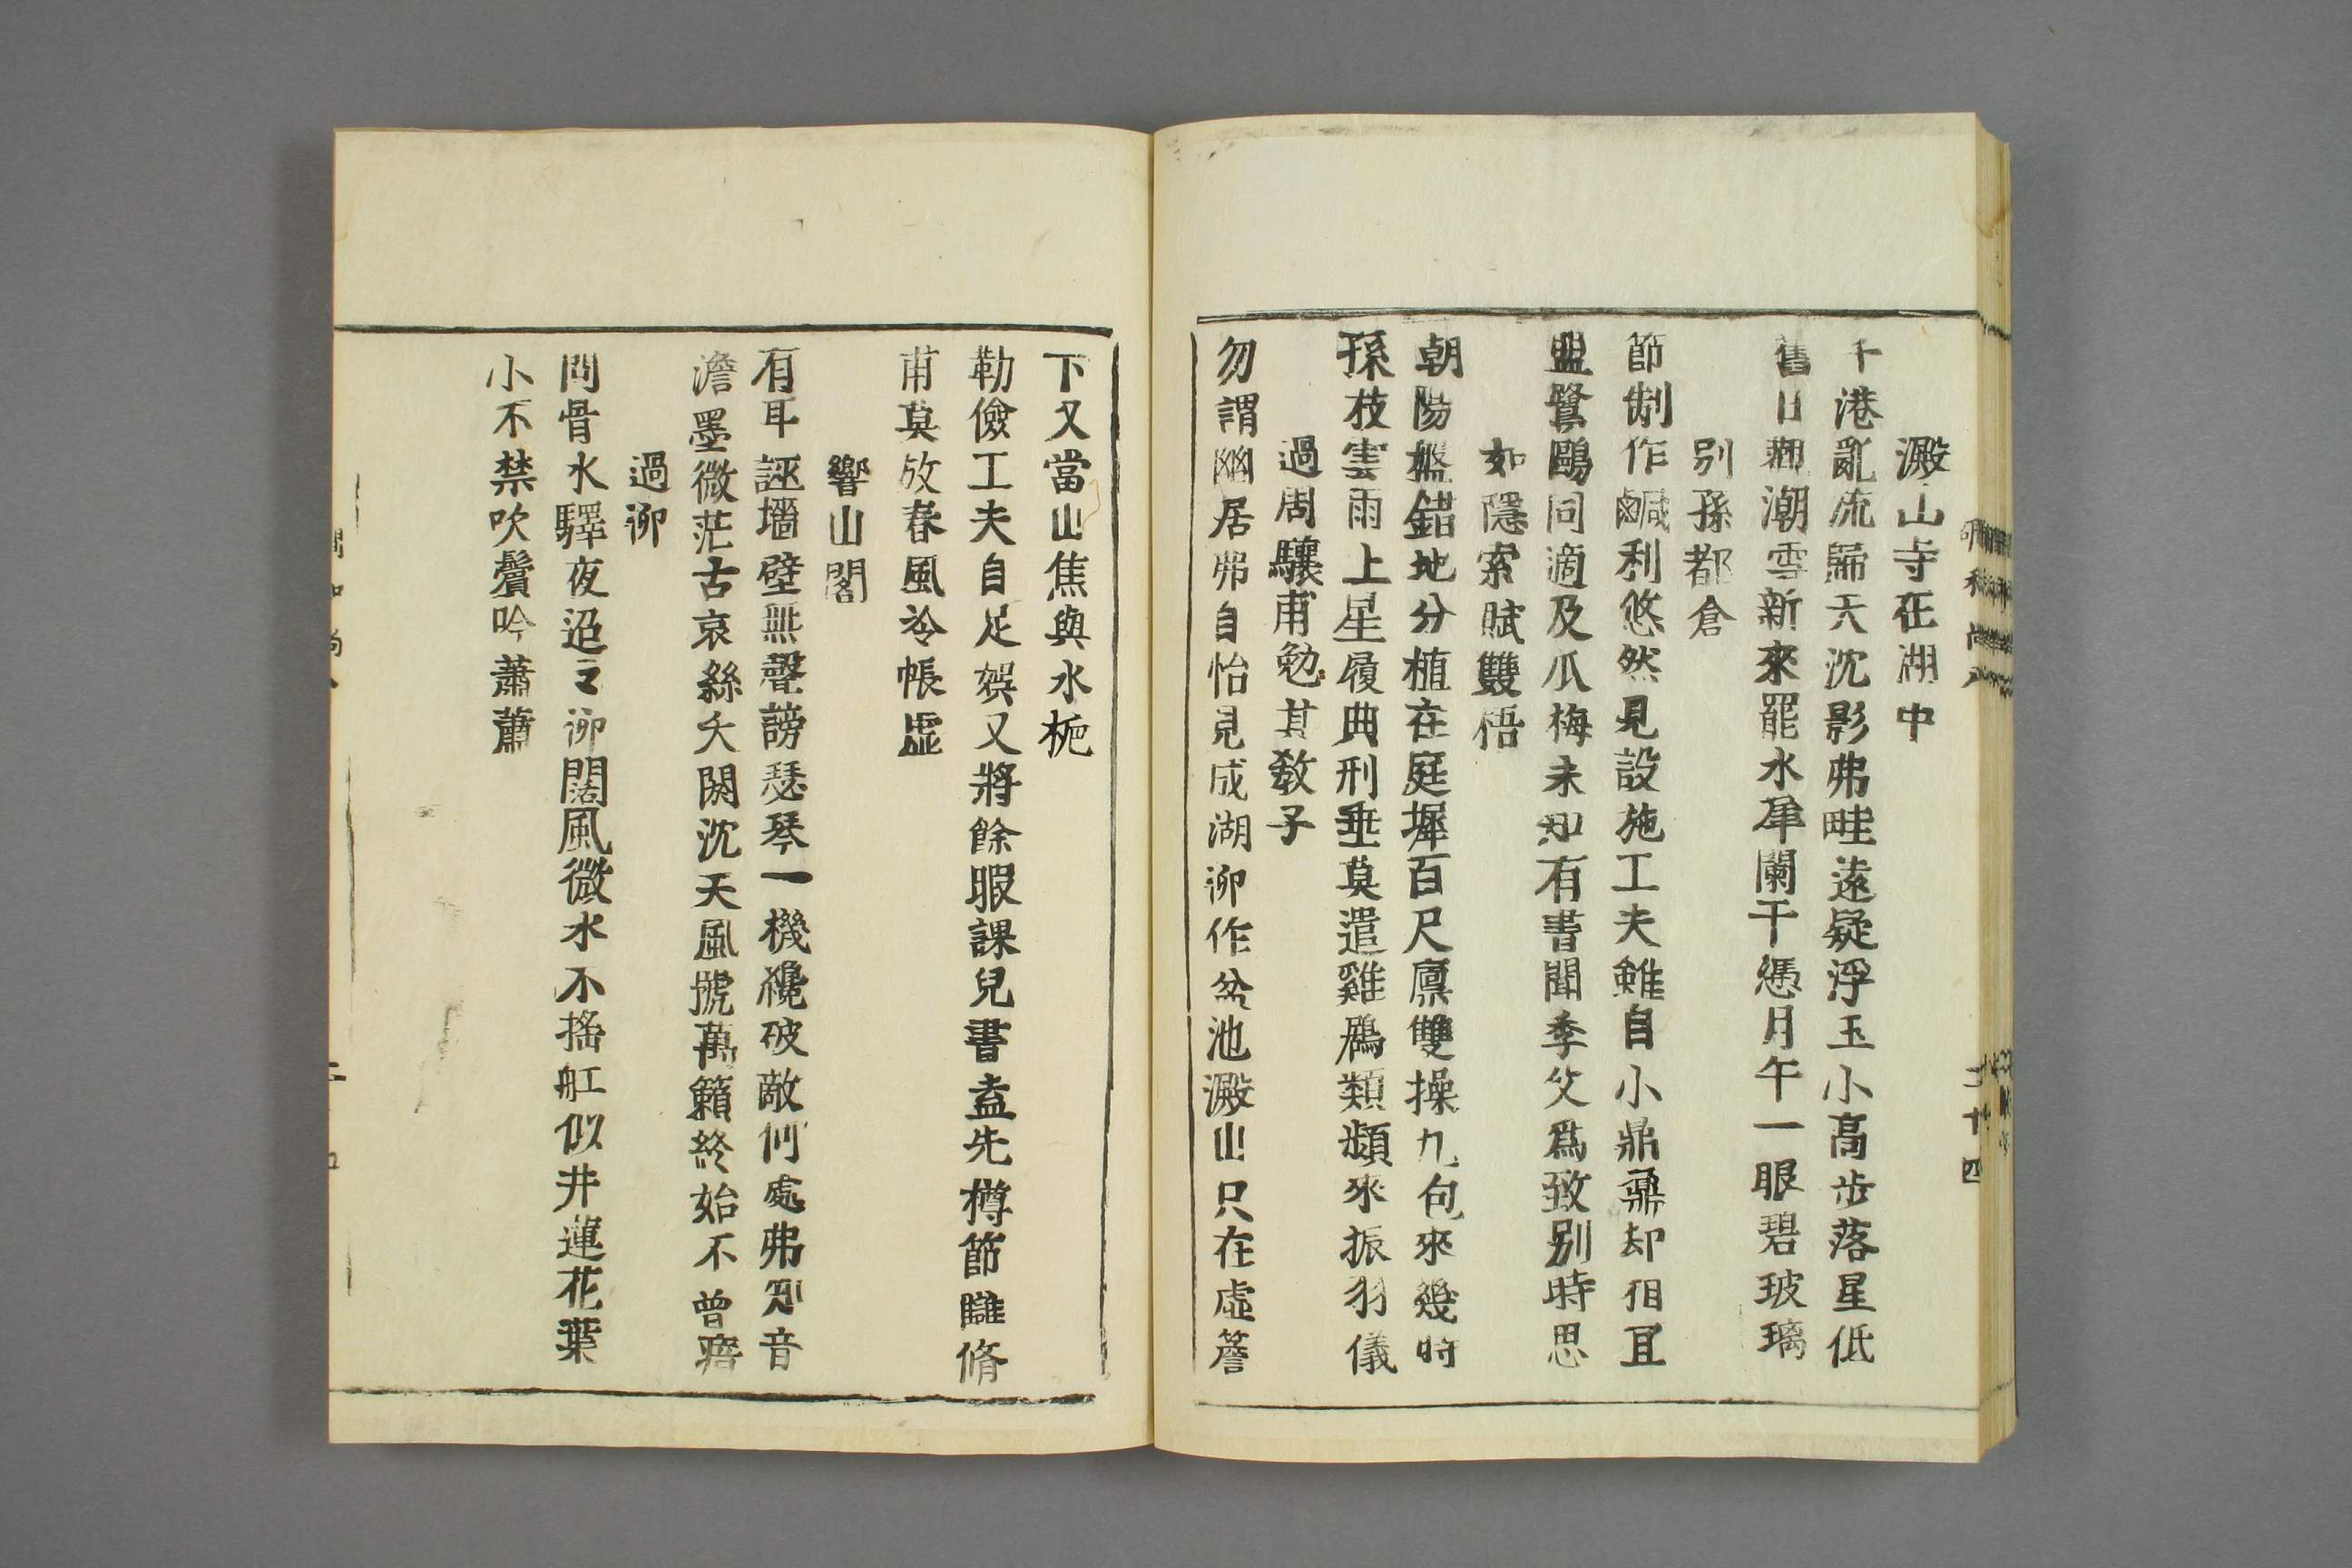 澱山寺在湖中
千港亂流歸天沈影弗畦遠疑浮玉小高步落星低
舊日觀潮雪新來罷水犀闌干慿月午一眼碧玻璃
别孫都倉
節制作鹹利悠然見設施工夫雖自小鼎鼐却相宜
盟鷺鷗同適及瓜梅未知有書聞季父爲致别時思
如隱索賦雙梧
朝陽盤錯地分植在庭墀百尺凜雙操九包來幾時
孫枝雲雨上星履典刑垂莫遣雞鴈類頻來振羽儀
過周驤甫勉其敎子
勿謂幽居弗自怡見成湖泖作盆池澱山只在虛簷
二十四
下又當山焦與水梔
勤儉工夫自足娯又將餘暇課兒書盍先樽節雖脩
甫莫放春風冷帳虛
響山閣
有耳誣墻壁無聲謗瑟琴一機纔破敵何處弗知音
澹墨微茫古哀絲久閼沈天風號萬籟終始不曾瘖
過泖
問骨水驛夜迢々泖闊風微水不搖舡似井蓮花葉
小不禁吹鬢吟蕭蕭